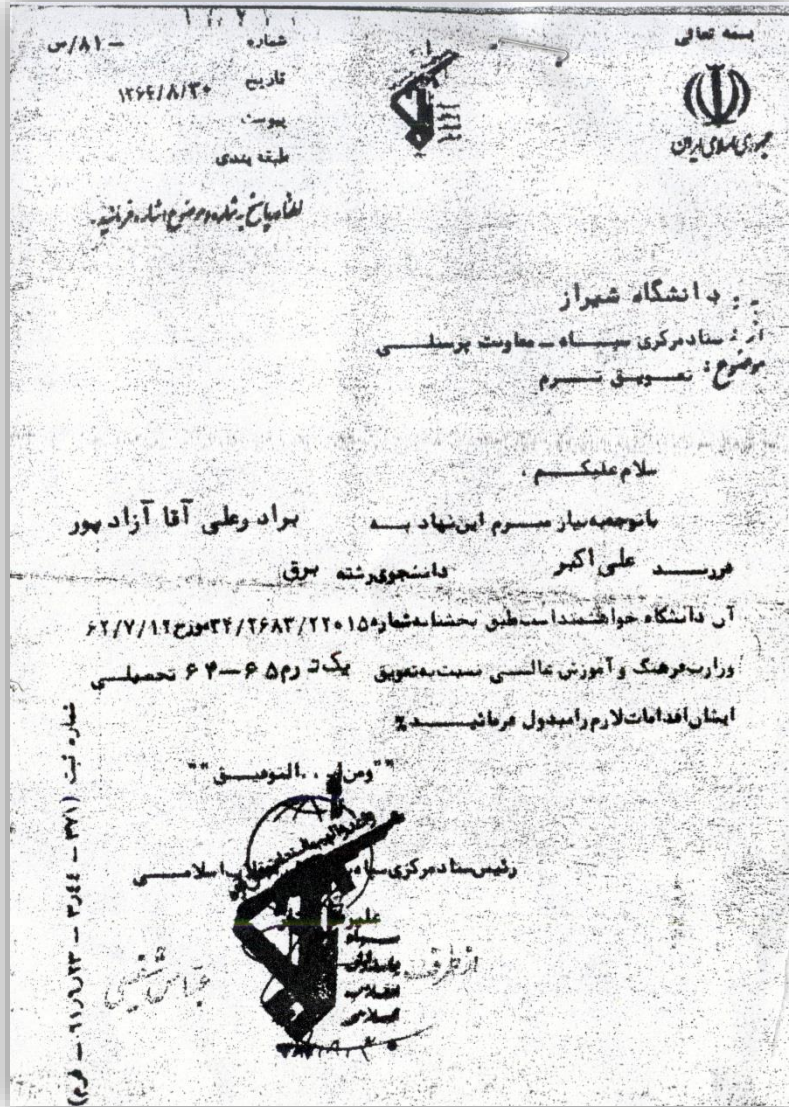 بسمه تعالی
جمهوری اسلامی ایران
شماره — ۸۱/س
تاریخ ۱۳۶۴/۸/۳۰
پیوست
طبقه بندی
لطفا در پاسخ به شماره و موضوع اشاره فرمائید.
به : دانشگاه شیراز
از : ستاد مرکزی سپاه – معاونت پرسنلی
موضوع : تعویق ترم
سلام علیکم .
با توجه به نیاز مبرم این نهاد به برادر علی آقا آزاد پور
فرزند علی اکبر دانشجوی رشته برق
آن دانشگاه خواهشمند است طبق بخشنامه شماره ۳۴/۲۶۸۳/۲۲۰۱۵ مورخ ۶۲/۷/۱۲
وزارت فرهنگ و آموزش عالی نسبت به تعویق یک ترم ۶۵–۶۴ تحصیلی
ایشان اقدامات لازم را مبذول فرمائید %
""ومن ا... التوفیق""
رئیس ستاد مرکزی سپاه اسلامی
علیرضا
سپاه
پاسداران
انقلاب
اسلامی
از طرف
شماره ثبت (۳۷۱ – ۳٫۴۴ – ۶۱٫۶٫۲۳ – فرم)